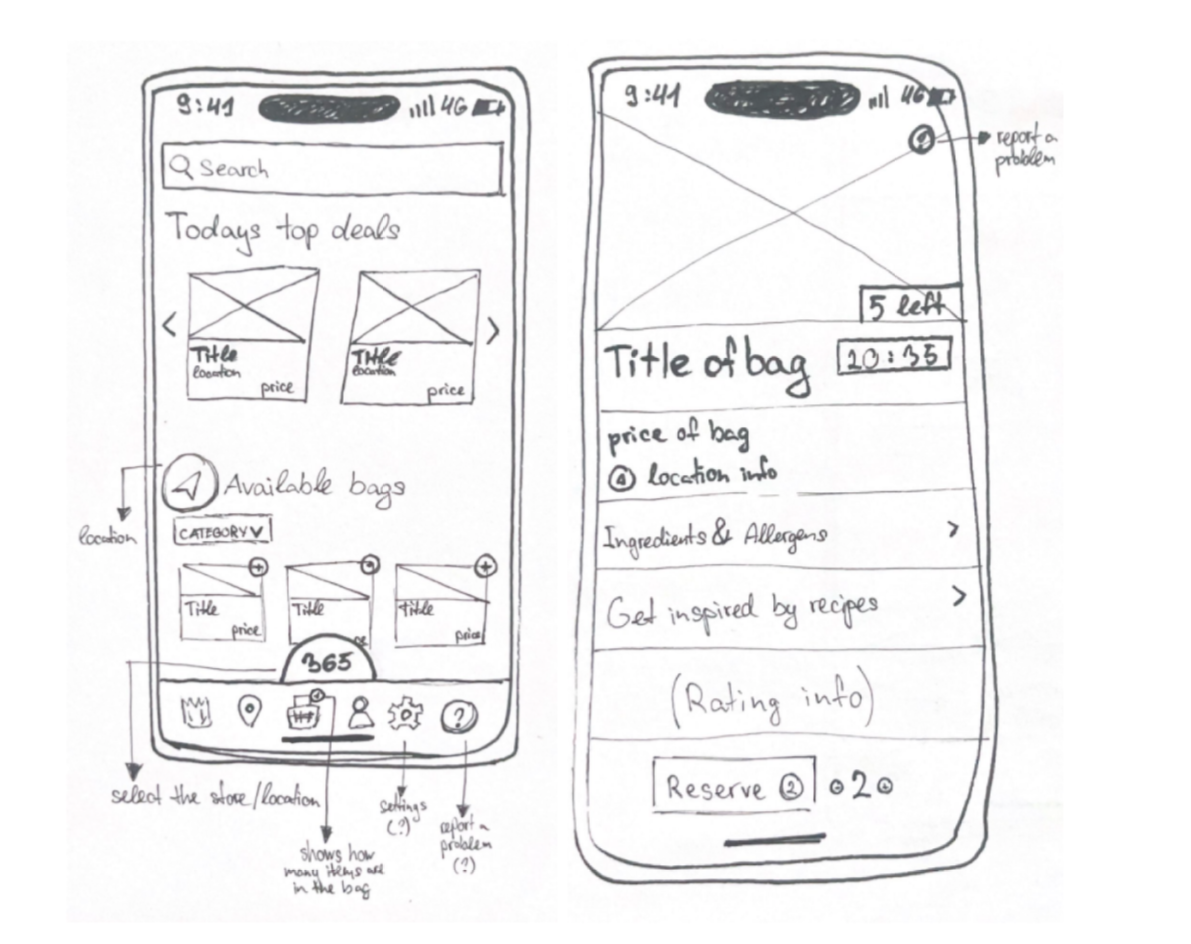 9:41 4G
Search
Todays top deals
< >
Title Title
location location
price price
Available bags
location
CATEGORY
Title Title Title
price price
365
?
select the store/location
shows how
many items are
in the bag
settings
(?)
report a
problem
(?)
9:41 4G
?
report a
problem
5 left
Title of bag 20:35
price of bag
location info
Ingredients & Allergens >
Get inspired by recipes >
(Rating info)
Reserve 2 2